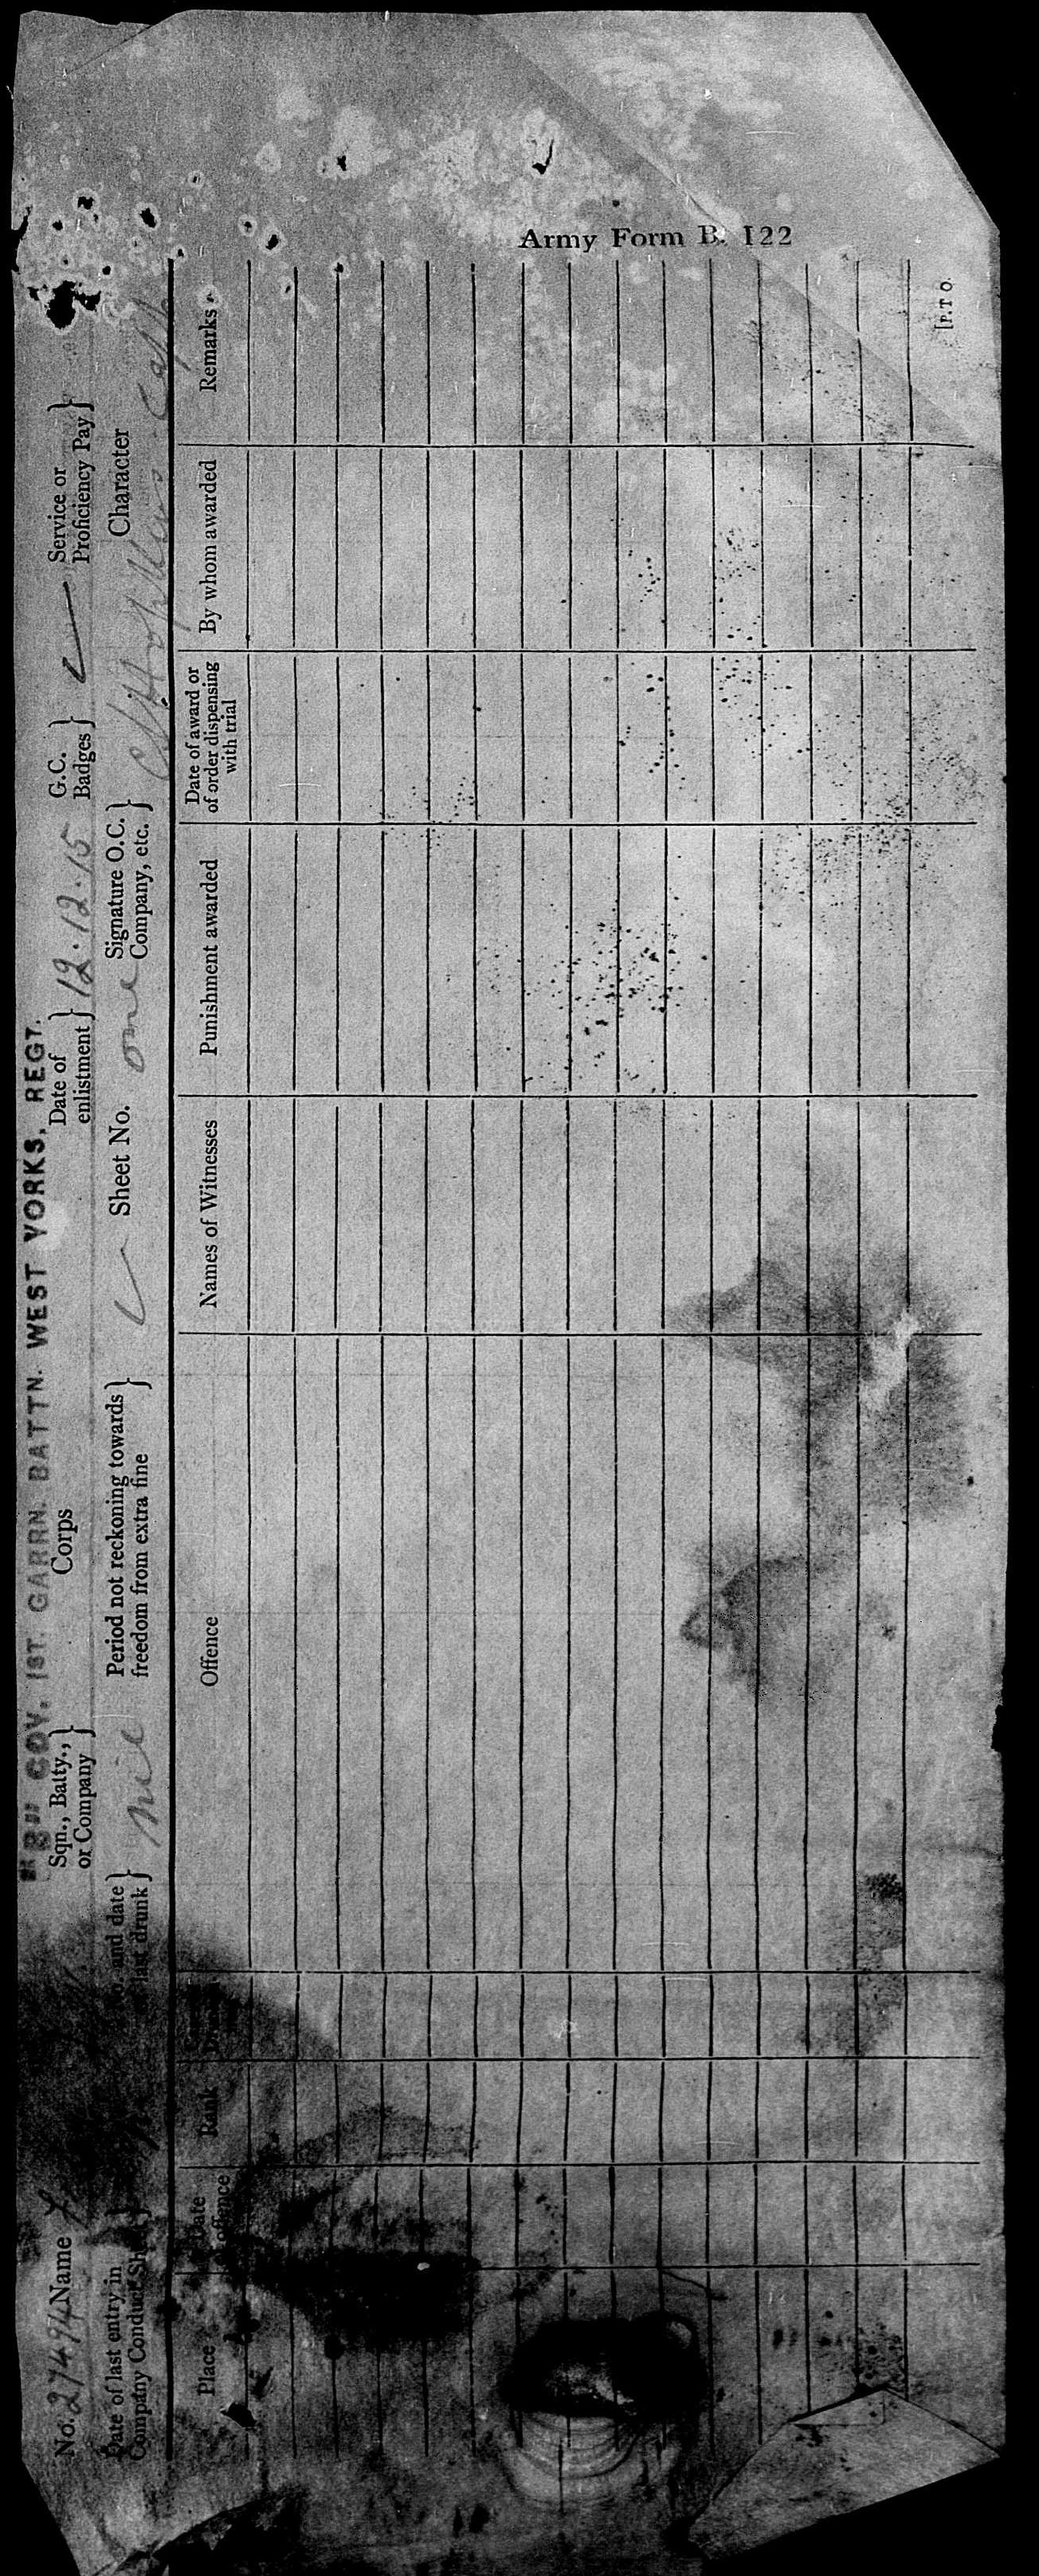 Army Form B. 122
"B" COY. 1ST. GARRN. BATTN. WEST YORKS, REGT.
No. 27494 Name Sqn., Batty., Corps Date of 12.12.15 G.C. Service or
or Company enlistment Badges Proficiency Pay
Date of last entry in No. and date nil Period not reckoning towards Sheet No. one Signature O.C. C H Hopkins Capt Character
Company Conduct Sheet last drunk freedom from extra fine Company, etc.
Place Date Rank Offence Names of Witnesses Punishment awarded Date of award or By whom awarded Remarks
offence of order dispensing
with trial
[P.T.O.